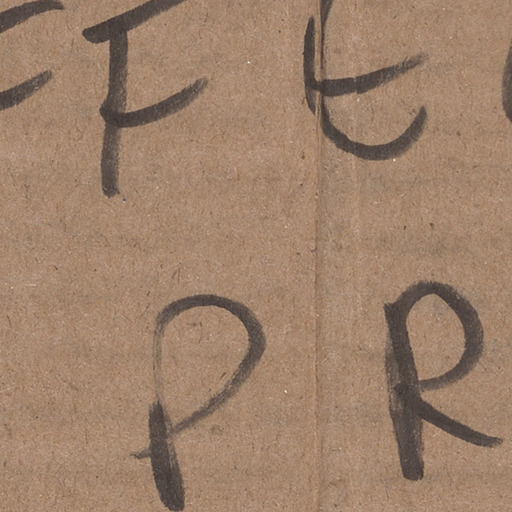 FFE
PR